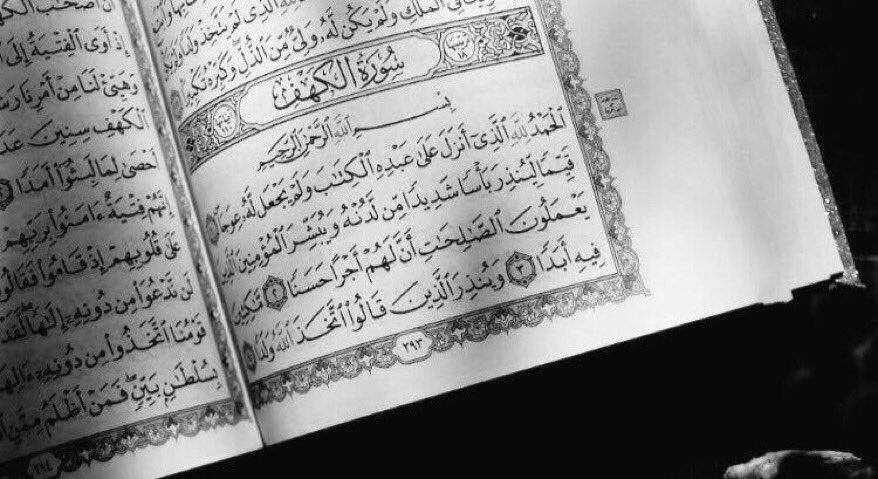 لَمْ يَتَّخِذْ وَلَدًا
فِي ٱلْمُلْكِ وَلَمْ يَكُن لَّهُۥ وَلِىٌّ مِّنَ ٱلذُّلِّ وَكَبِّرْهُ تَكْبِيرًا
سُورَةُ الكَهْفِ
بِسْمِ ٱللَّهِ ٱلرَّحْمَٰنِ ٱلرَّحِيمِ
ٱلْحَمْدُ لِلَّهِ ٱلَّذِىٓ أَنزَلَ عَلَىٰ عَبْدِهِ ٱلْكِتَٰبَ وَلَمْ يَجْعَل لَّهُۥ عِوَجَا ۜ ١
قَيِّمًا لِّيُنذِرَ بَأْسًا شَدِيدًا مِّن لَّدُنْهُ وَيُبَشِّرَ ٱلْمُؤْمِنِينَ ٱلَّذِينَ
يَعْمَلُونَ ٱلصَّٰلِحَٰتِ أَنَّ لَهُمْ أَجْرًا حَسَنًا ٢ مَّٰكِثِينَ
فِيهِ أَبَدًا ٣ وَيُنذِرَ ٱلَّذِينَ قَالُوا۟ ٱتَّخَذَ ٱللَّهُ وَلَدًا ٤
٢٩٣
أَنَّ أَصْحَٰبَ ٱلْكَهْفِ
إِذْ أَوَى ٱلْفِتْيَةُ إِلَى
وَهَيِّئْ لَنَا مِنْ أَمْرِنَا
ٱلْكَهْفِ سِنِينَ
أَحْصَىٰ لِمَا لَبِثُوٓا۟ أَمَدًا
إِنَّهُمْ فِتْيَةٌ ءَامَنُوا۟ بِرَبِّهِمْ
عَلَىٰ قُلُوبِهِمْ إِذْ قَامُوا۟ فَقَالُوا۟
لَن نَّدْعُوَا۟ مِن دُونِهِۦٓ إِلَٰهًا لَّقَدْ
قَوْمُنَا ٱتَّخَذُوا۟ مِن دُونِهِۦٓ
بِسُلْطَٰنٍۭ بَيِّنٍ فَمَنْ أَظْلَمُ مِمَّنِ
٢٩٤